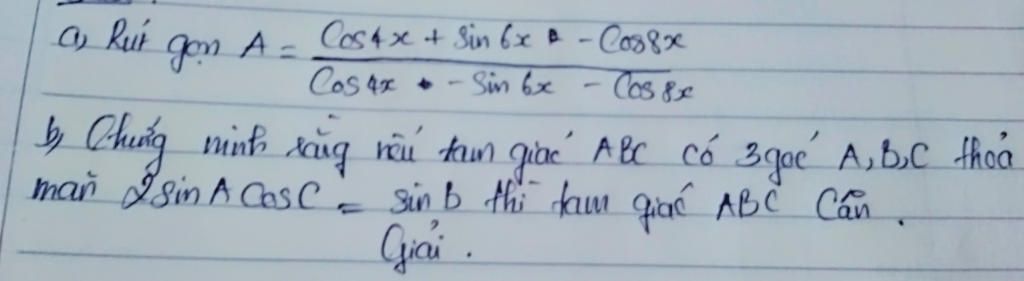 a, Rút gọn A = (Cos4x + Sin6x - Cos8x) / (Cos4x - Sin6x - Cos8x)
b, Chứng minh rằng nếu tam giác ABC có 3 góc A,B,C thoả
mãn 2sinA CosC = sinb thì tam giác ABC Cân .
Giải .